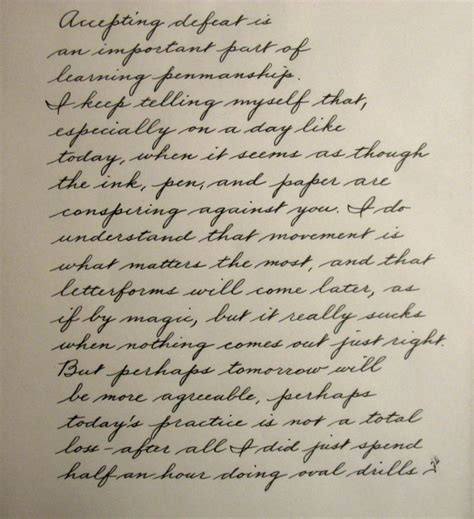 Accepting defeat is
an important part of
learning penmanship.
I keep telling myself that,
especially on a day like
today, when it seems as though
the ink, pen, and paper are
conspiring against you. I do
understand that movement is
what matters the most, and that
letterforms will come later, as
if by magic, but it really sucks
when nothing comes out just right.
But perhaps tomorrow will
be more agreeable, perhaps
today's practice is not a total
loss - after all I did just spend
half an hour doing oval drills